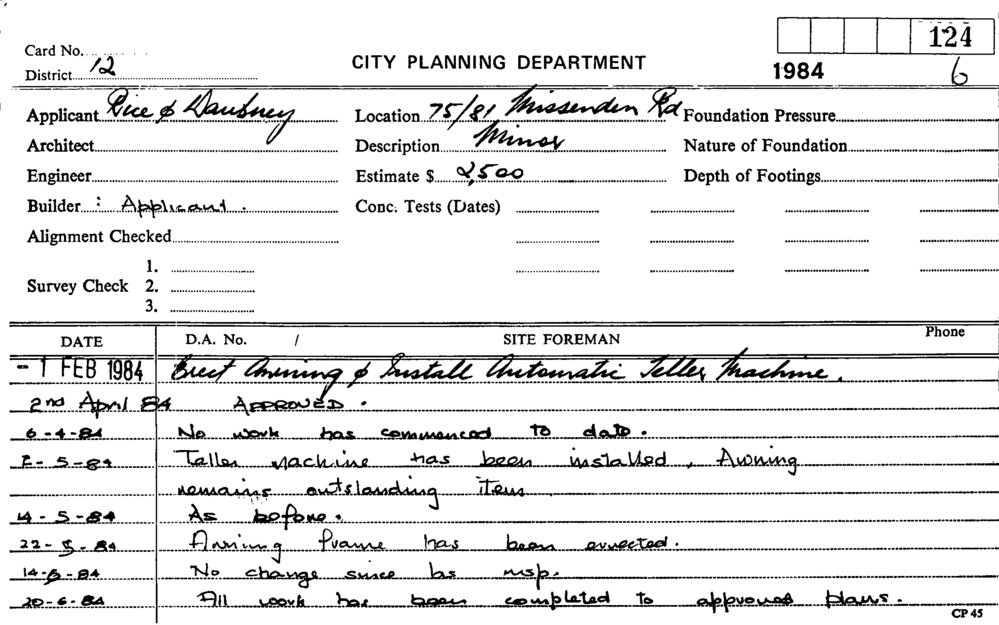 124
Card No.
District 12
CITY PLANNING DEPARTMENT
1984 6
Applicant Rice & Daubney Location 75/81 Missenden Rd Foundation Pressure
Architect Description Minor Nature of Foundation
Engineer Estimate $ 2,500 Depth of Footings
Builder : Applicant. Conc. Tests (Dates)
Alignment Checked
1.
Survey Check 2.
3.
DATE D.A. No. / SITE FOREMAN Phone
- 1 FEB 1984 Erect Awning & Install Automatic Teller Machine.
2nd April 84 APPROVED.
6-4-84 No work has commenced to date.
2-5-84 Teller machine has been installed, Awning
remains outstanding item
14-5-84 As before.
22-5-84 Awning frame has been errected.
14-6-84 No change since las insp.
20-6-84 All work has been completed to approved plans.
CP 45